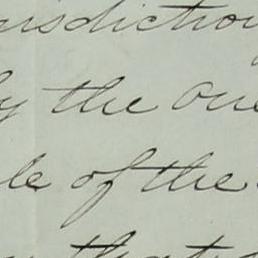 urisdiction
by the one
le of the
that